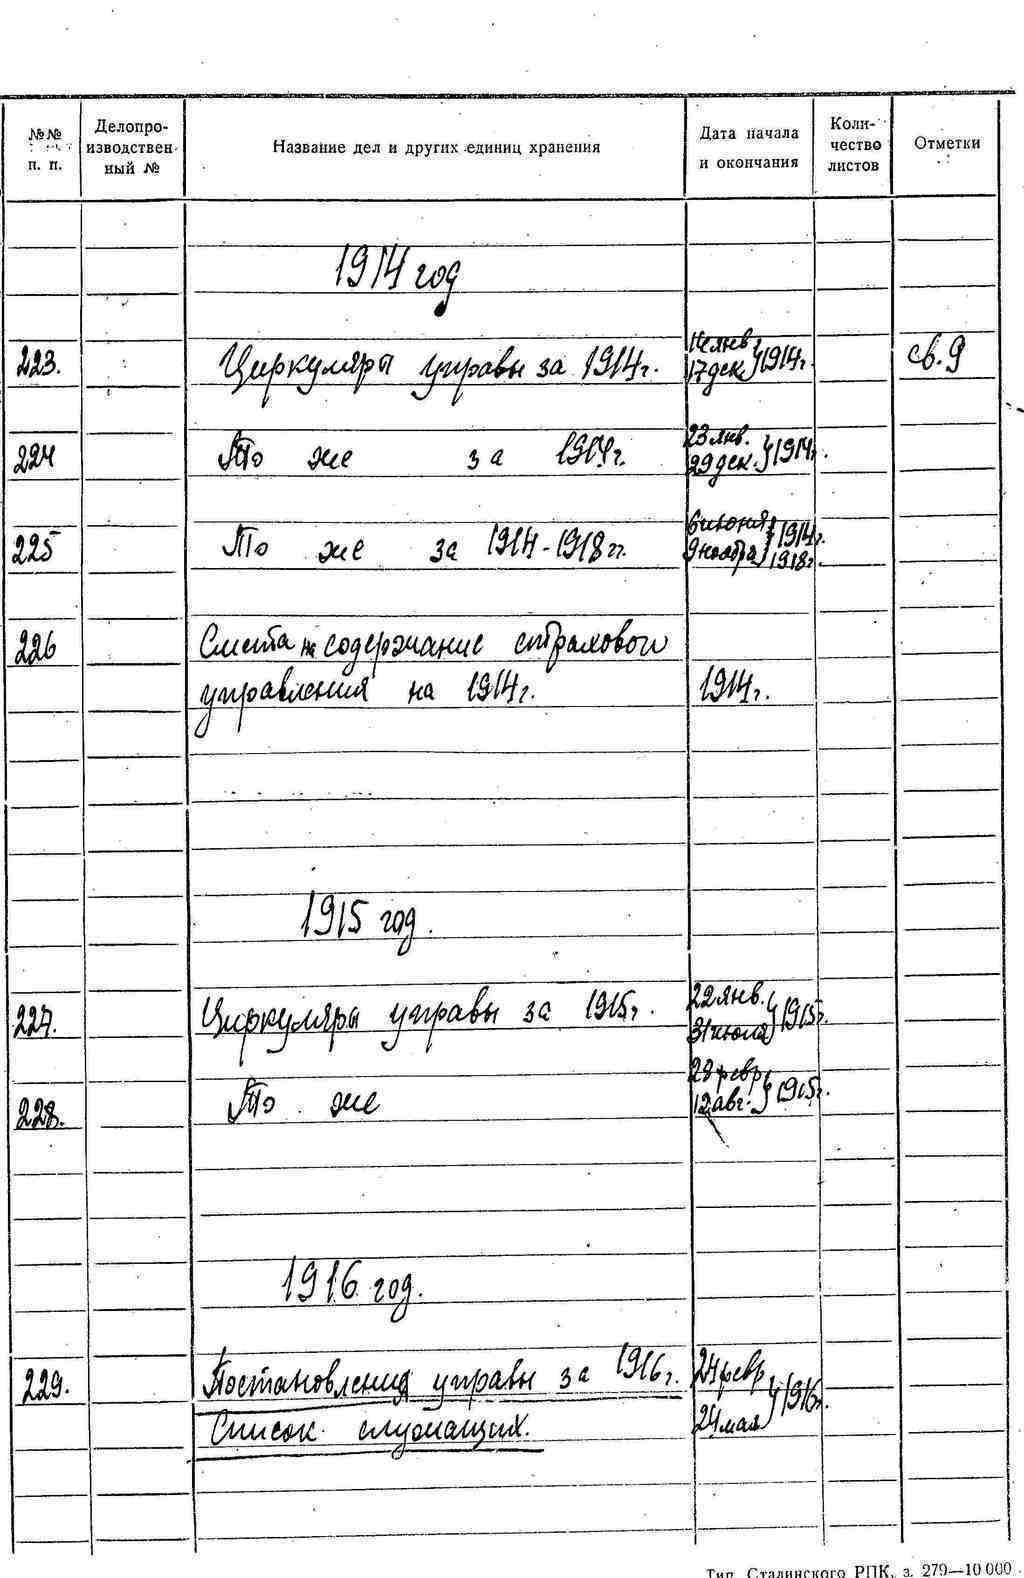 №№ п. п.
Делопро-
изводствен-
ный №
Название дел и других единиц хранения
Дата начала
и окончания
Коли-
чество
листов
Отметки
1914 год
223. Циркуляры управы за 1914г. 14 янв. 17 дек. } 1914г. св. 9
224 То же за 1914г. 23 янв. 29 дек. } 1914г.
225 То же за 1914-1918гг. 6 июня 1914г. 9 ноября } 1918г.
226 Смета на содержание страхового
управления на 1914г. 1914г.
1915 год.
227. Циркуляры управы за 1915г. 22 янв. 31 июля } 1915г.
228. То же 28 февр. 12 авг. } 1915г.
1916 год.
229. Постановления управы за 1916г. 24 февр.
Список служащих. 24 мая } 1916г.
Тип. Сталинского РПК, з. 279—10 000